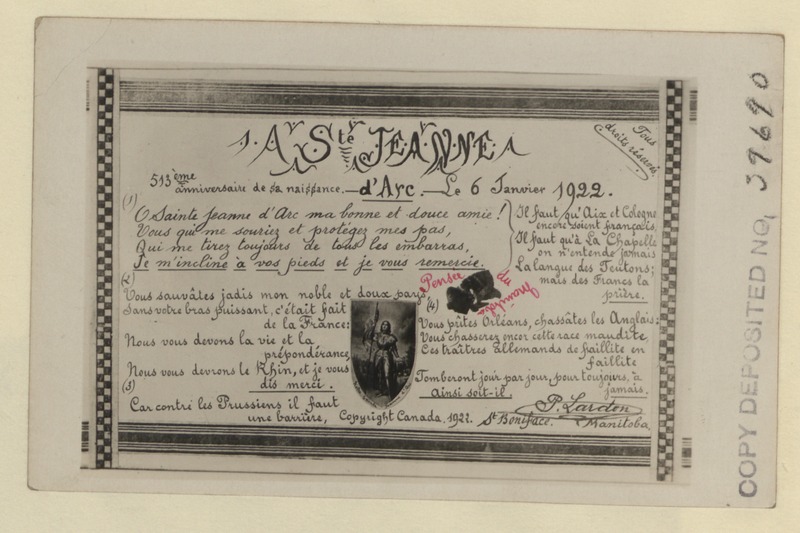 A Ste JEANNE
513ème anniversaire de sa naissance. — d'Arc. — Le 6 Janvier 1922.
Tous droits réservés.
(1)
O Sainte Jeanne d'Arc ma bonne et douce amie!
Vous qui me souriez et protégez mes pas,
Qui me tirez toujours de tous les embarras,
Je m'incline à vos pieds et je vous remercie.
(2)
Vous sauvâtes jadis mon noble et doux pays,
Sans votre bras puissant, c'était fait
de la France:
Nous vous devons la vie et la
prépondérance,
Nous vous devrons le Rhin, et je vous
dis merci.
(3)
Car contre les Prussiens il faut
une barrière,
Il faut qu'Aix et Cologne
encore soient français,
Il faut qu'à La Chapelle
on n'entende jamais
La langue des Teutons;
mais des Francs la
prière.
Pensée du Manitoba
(4)
Vous prîtes Orléans, chassâtes les Anglais;
Vous chasserez encor cette race maudite,
Ces traîtres allemands de faillite en
faillite
Tomberont jour par jour, pour toujours, à
jamais.
Ainsi soit-il.
P. Lardon
Copyright Canada, 1922. St Boniface. Manitoba
COPY DEPOSITED NO. 39690